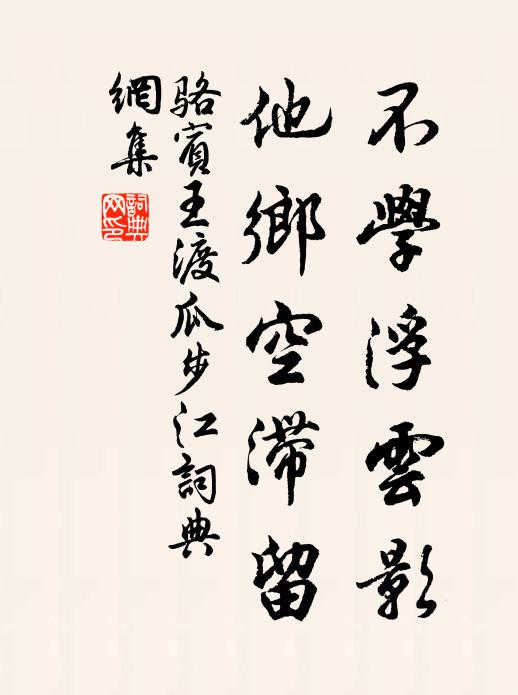 不學浮雲影
他鄉空滯留
駱賓王渡瓜步江詞典
網集
詞典
网印